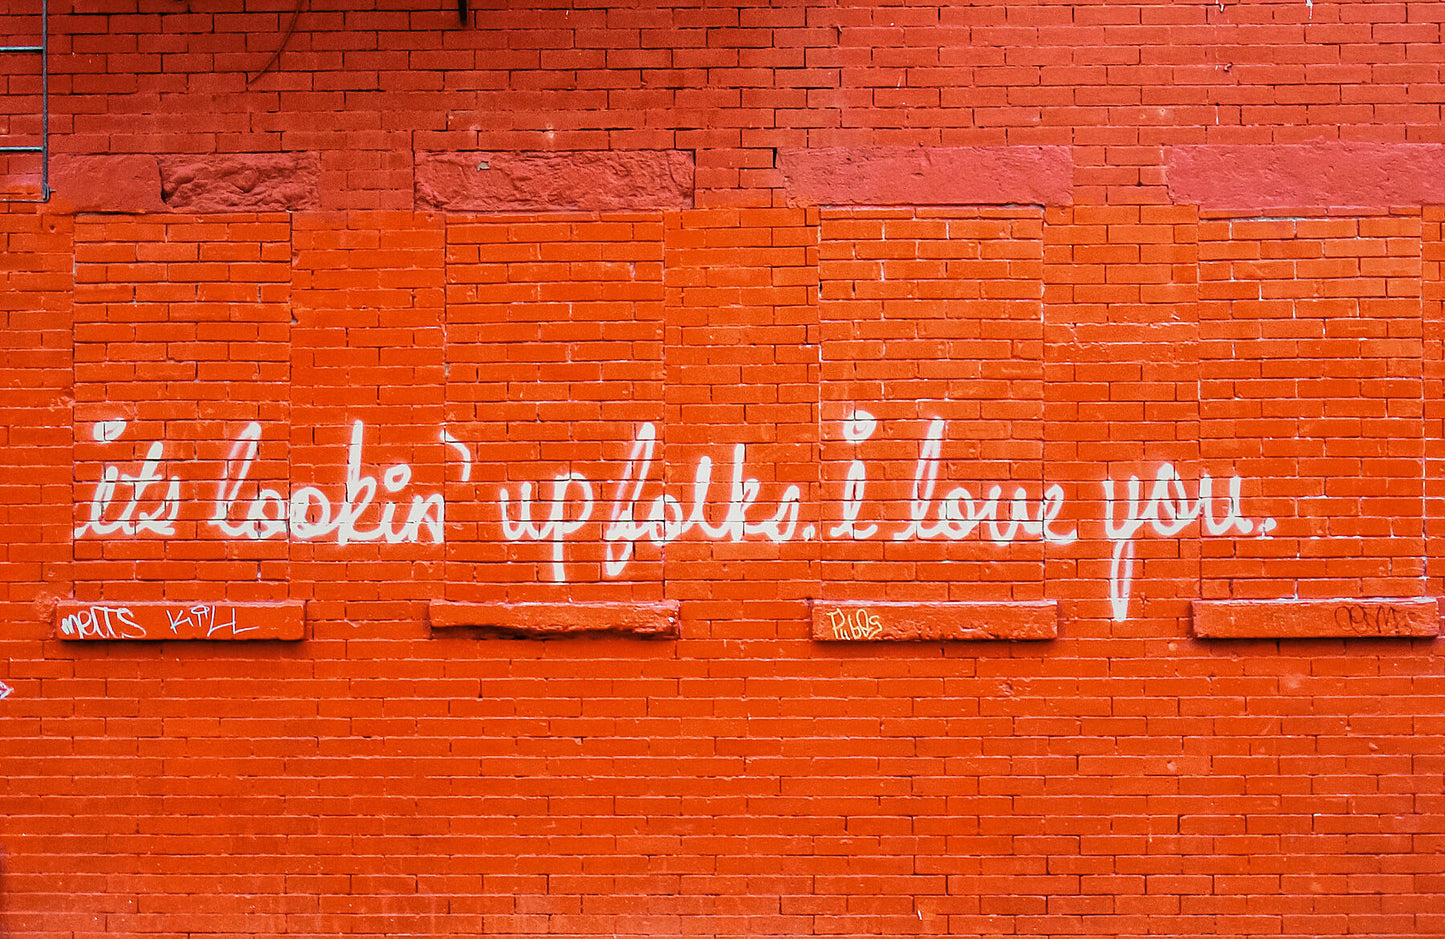 its lookin' up folks. i love you.
melts KiLL